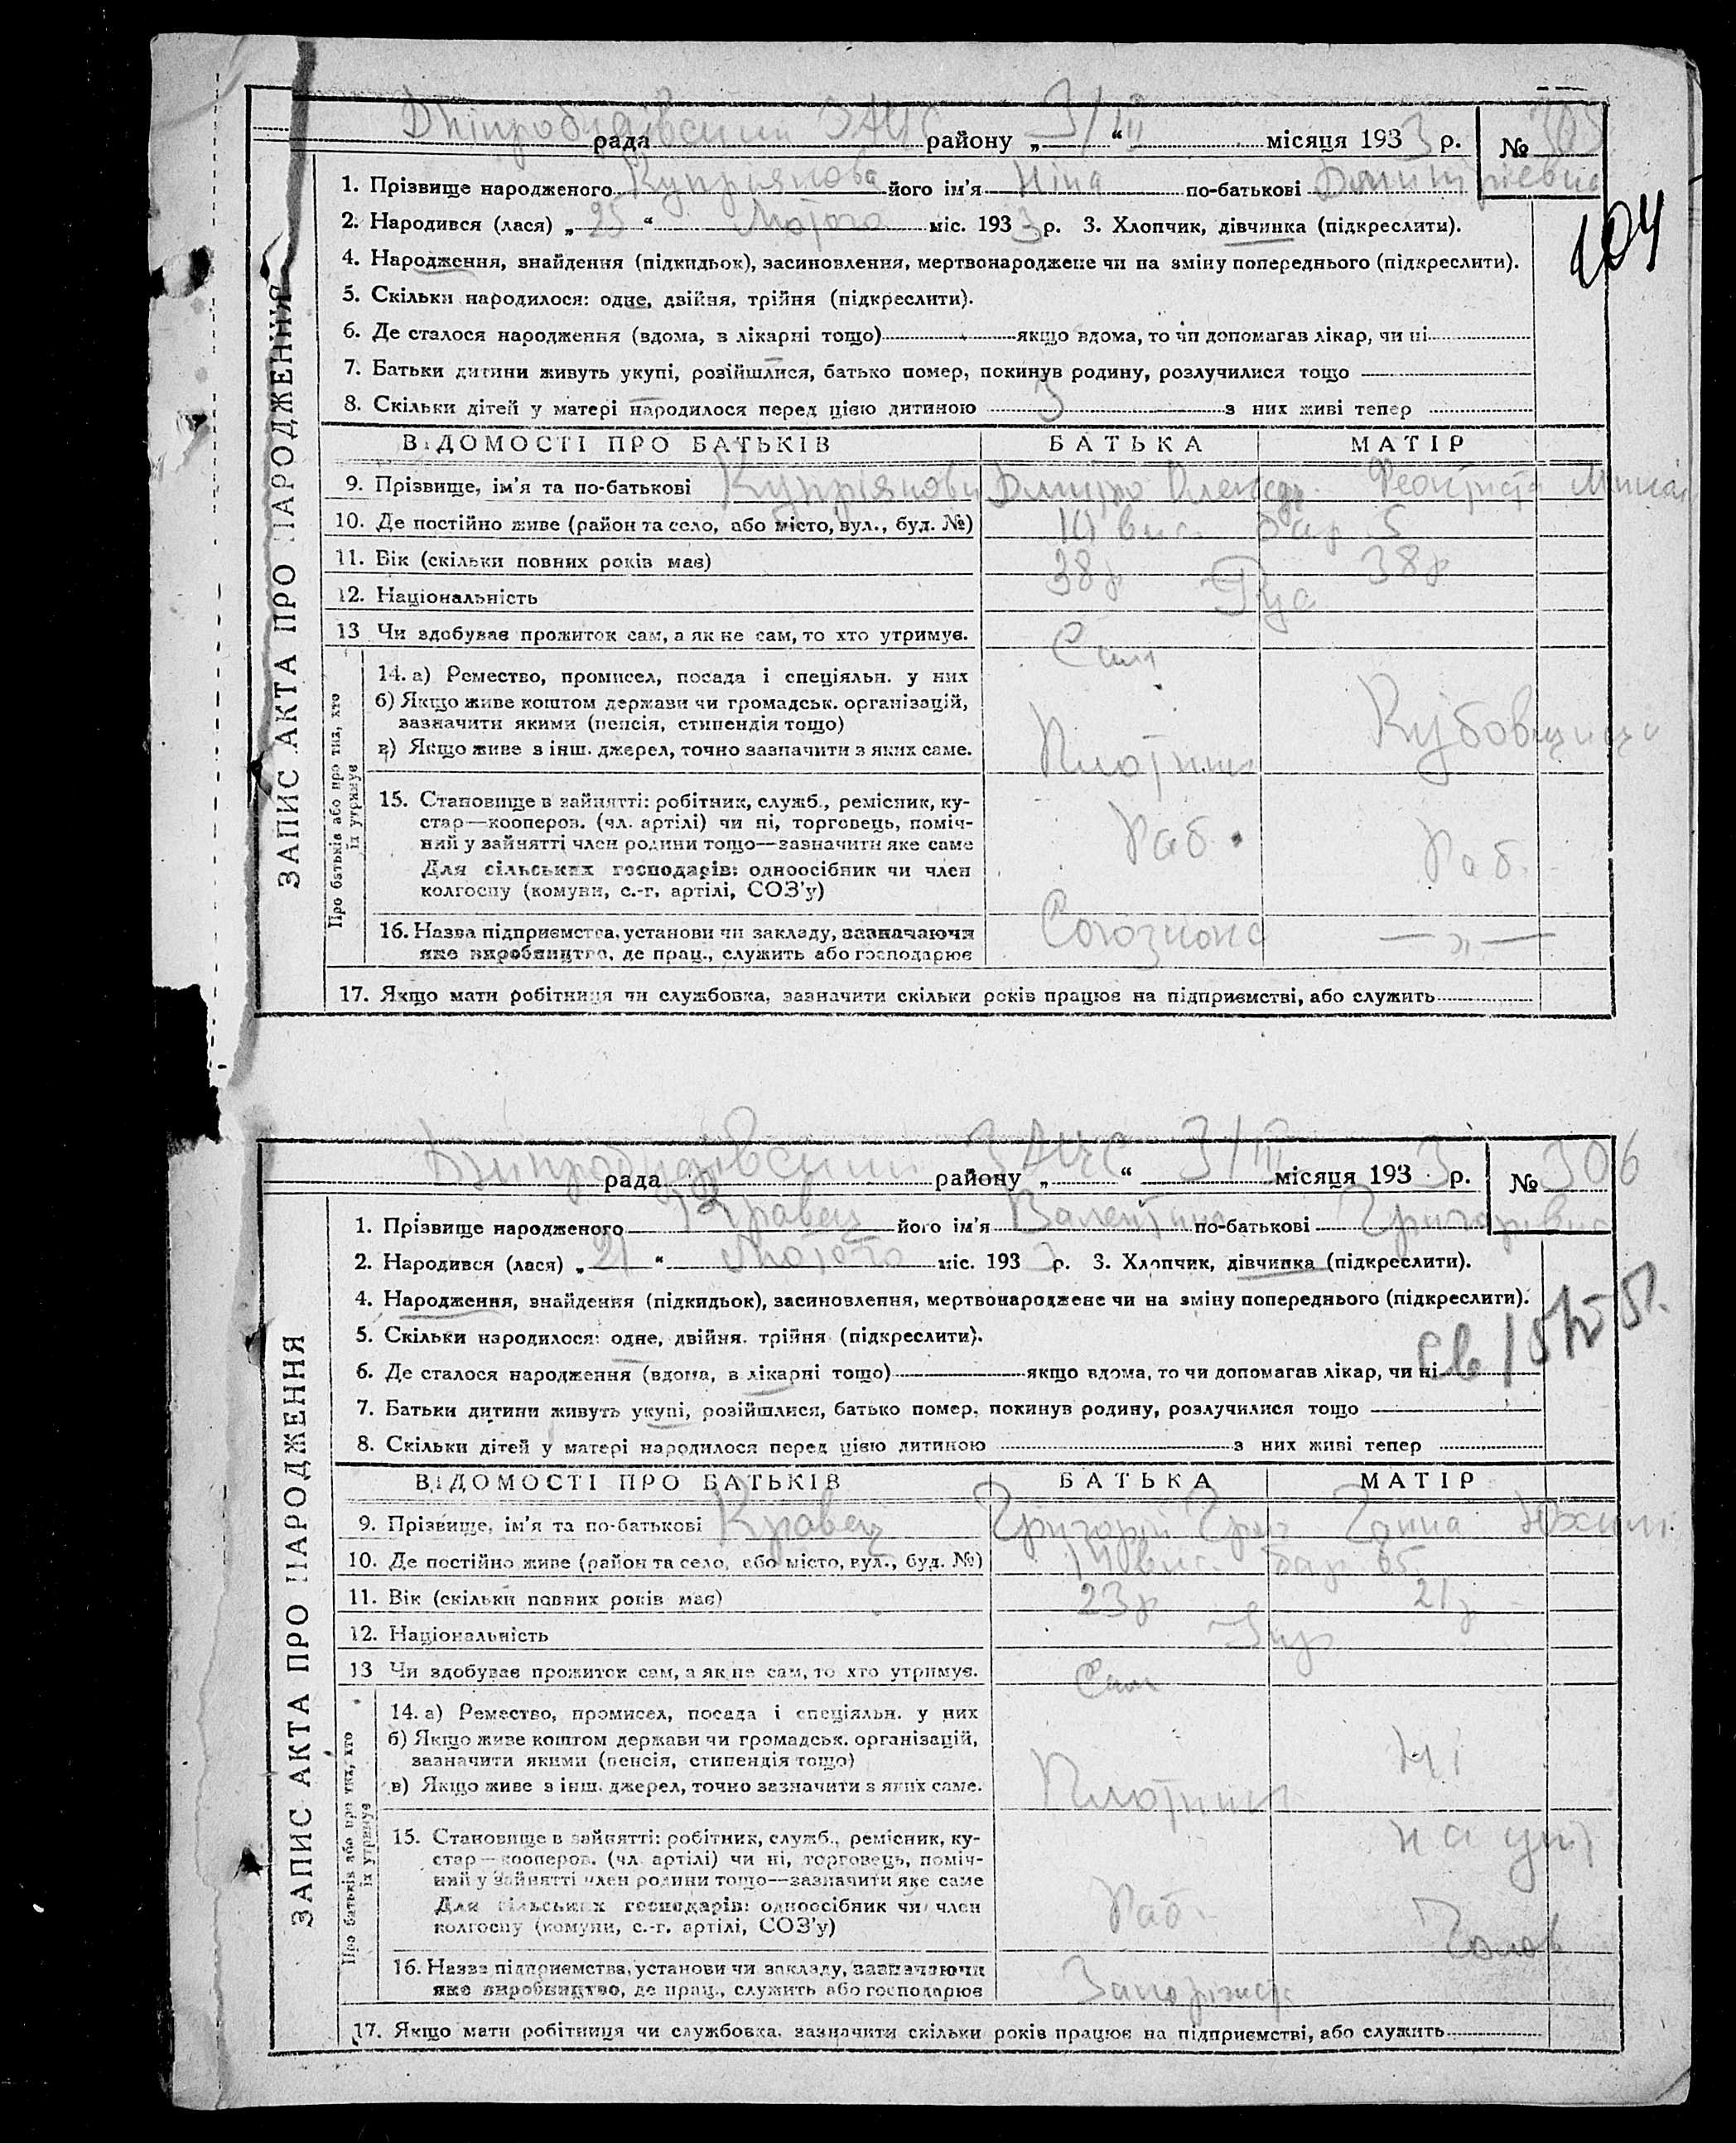 Дніпробудівський ЗАГС 3/III
рада району „ “ місяця 1933 р. № 305
1. Прізвище народженого Купріянова його ім'я Ніна по-батькові Дмитрієвна
2. Народився (лася) „ 25 “ Лютого міс. 1933 р. 3. Хлопчик, дівчинка (підкреслити).
104
4. Народження, знайдення (підкидьок), засиновлення, мертвонароджене чи на зміну попереднього (підкреслити).
5. Скільки народилося: одне, двійня, трійня (підкреслити).
6. Де сталося народження (вдома, в лікарні тощо) якщо вдома, то чи допомагав лікар, чи ні
7. Батьки дитини живуть укупі, розійшлися, батько помер, покинув родину, розлучилися тощо
8. Скільки дітей у матері народилося перед цією дитиною 3 з них живі тепер
ВІДОМОСТІ ПРО БАТЬКІВ БАТЬКА МАТІР
9. Прізвище, ім'я та по-батькові Купріянови Дмитро Феоктиста
10. Де постійно живе (район та село, або місто, вул., буд. №) вис. бар 5
11. Вік (скільки повних років має) 38р 38р
12. Національність
13 Чи здобуває прожиток сам, а як не сам, то хто утримує. Сам
ЗАПИС АКТА ПРО НАРОДЖЕННЯ
Про батьків або про тих, хто їх утримує
14. а) Ремество, промисел, посада і спеціяльн. у них
б) Якщо живе коштом держави чи громадськ. організацій,
зазначити якими (пенсія, стипендія тощо)
в) Якщо живе з інш. джерел, точно зазначити з яких саме. Плотник
15. Становище в зайнятті: робітник, служб., ремісник, ку-
стар—кооперов. (чл. артілі) чи ні, торговець, поміч-
ний у зайнятті член родини тощо—зазначити яке саме Раб. Раб.
Для сільських господарів: одноосібник чи член
колгоспу (комуни, с.-г. артілі, СОЗ'у)
16. Назва підприємства, установи чи закладу, зазначаючи — „ —
яке виробництво, де прац., служить або господарює
17. Якщо мати робітниця чи службовка, зазначити скільки років працює на підприємстві, або служить
Дніпробудівський ЗАГС 3/III
рада району „ “ місяця 1933 р. № 306
1. Прізвище народженого Кравец його ім'я Валентина по-батькові Григорівна
2. Народився (лася) „ 21 “ Лютого міс. 1933 р. 3. Хлопчик, дівчинка (підкреслити).
4. Народження, знайдення (підкидьок), засиновлення, мертвонароджене чи на зміну попереднього (підкреслити).
5. Скільки народилося: одне, двійня, трійня (підкреслити).
6. Де сталося народження (вдома, в лікарні тощо) якщо вдома, то чи допомагав лікар, чи ні
7. Батьки дитини живуть укупі, розійшлися, батько помер, покинув родину, розлучилися тощо
8. Скільки дітей у матері народилося перед цією дитиною з них живі тепер
ВІДОМОСТІ ПРО БАТЬКІВ БАТЬКА МАТІР
9. Прізвище, ім'я та по-батькові Кравец Григорій Григ Ганна
10. Де постійно живе (район та село, або місто, вул., буд. №) вис. бар.
11. Вік (скільки повних років має) 23р 21р
12. Національність Укр
13 Чи здобуває прожиток сам, а як не сам, то хто утримує. Сам
ЗАПИС АКТА ПРО НАРОДЖЕННЯ
Про батьків або про тих, хто їх утримує
14. а) Ремество, промисел, посада і спеціяльн. у них
б) Якщо живе коштом держави чи громадськ. організацій,
зазначити якими (пенсія, стипендія тощо) Ні
в) Якщо живе з інш. джерел, точно зазначити з яких саме. Плотник
15. Становище в зайнятті: робітник, служб., ремісник, ку- на утр
стар—кооперов. (чл. артілі) чи ні, торговець, поміч-
ний у зайнятті член родини тощо—зазначити яке саме
Для сільських господарів: одноосібник чи член Раб.
колгоспу (комуни, с.-г. артілі, СОЗ'у) Чолов
16. Назва підприємства, установи чи закладу, зазначаючи
яке виробництво, де прац., служить або господарює
17. Якщо мати робітниця чи службовка, зазначити скільки років працює на підприємстві, або служить